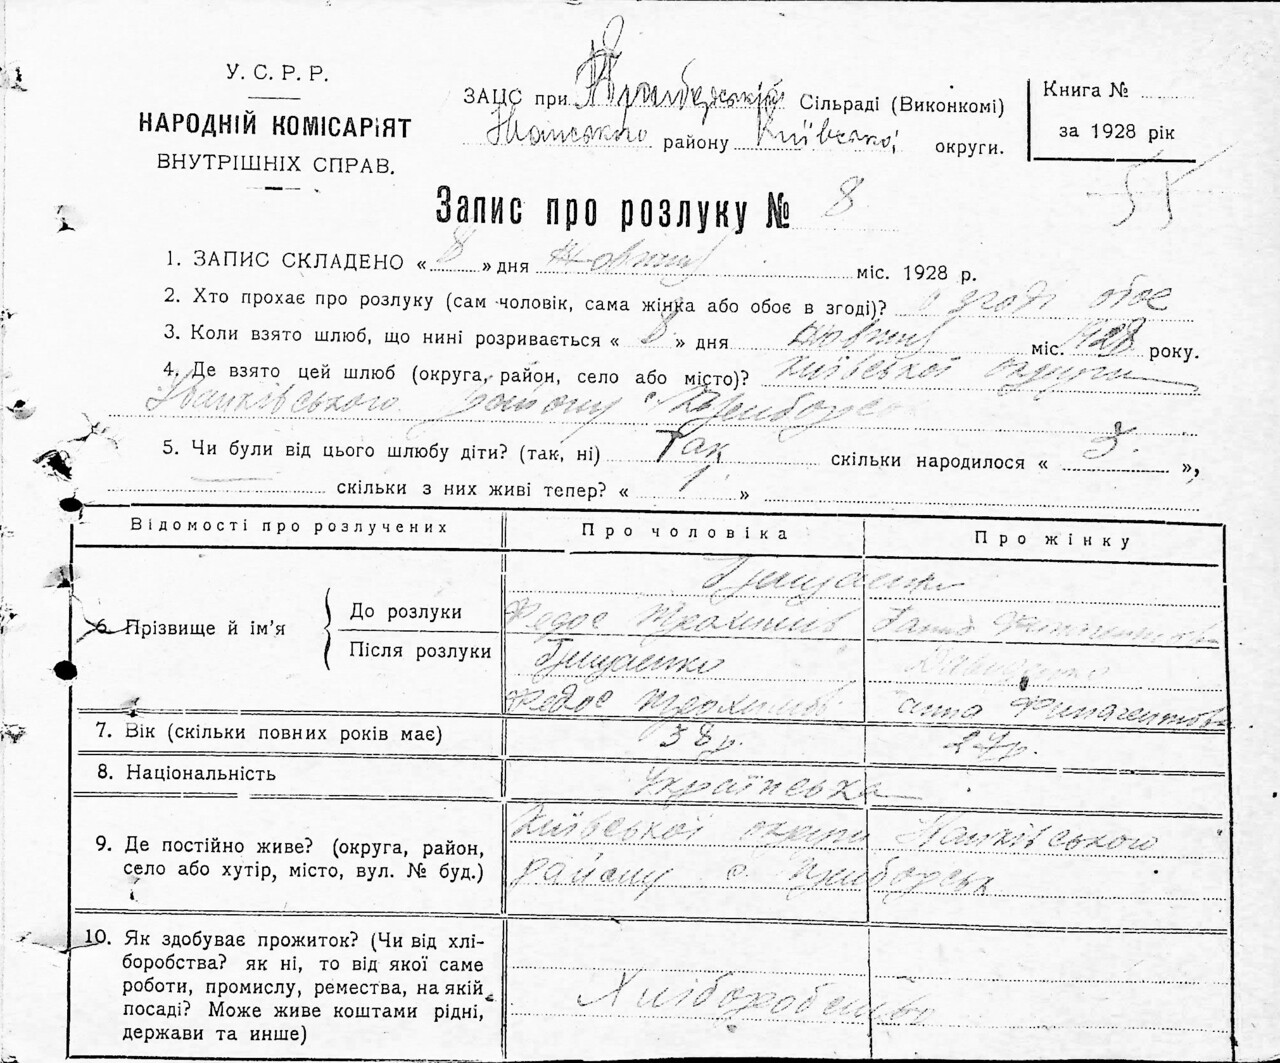 У. С. Р. Р.
НАРОДНІЙ КОМІСАРІЯТ
ВНУТРІШНІХ СПРАВ.
ЗАЦС при Сільраді (Виконкомі)
району Київської округи.
Книга №
за 1928 рік
55
Запис про розлуку № 8
1. ЗАПИС СКЛАДЕНО « 8 » дня міс. 1928 р.
2. Хто прохає про розлуку (сам чоловік, сама жінка або обоє в згоді)? в згоді обоє
3. Коли взято шлюб, що нині розривається « 8 » дня міс. року.
4. Де взято цей шлюб (округа, район, село або місто)? Київської округи
Іванківського району с.
5. Чи були від цього шлюбу діти? (так, ні) Так скільки народилося « 3 »,
скільки з них живі тепер? « »
Відомості про розлучених
Про чоловіка
Про жінку
6. Прізвище й ім'я
До розлуки
Федос
Ганна
Після розлуки
Федос
7. Вік (скільки повних років має)
38 р.
27 р.
8. Національність
Українська
9. Де постійно живе? (округа, район,
село або хутір, місто, вул. № буд.)
Київської округи
району с. Приборськ
10. Як здобуває прожиток? (Чи від хлі-
боробства? як ні, то від якої саме
роботи, промислу, ремества, на якій
посаді? Може живе коштами рідні,
держави та инше)
Хліборобство